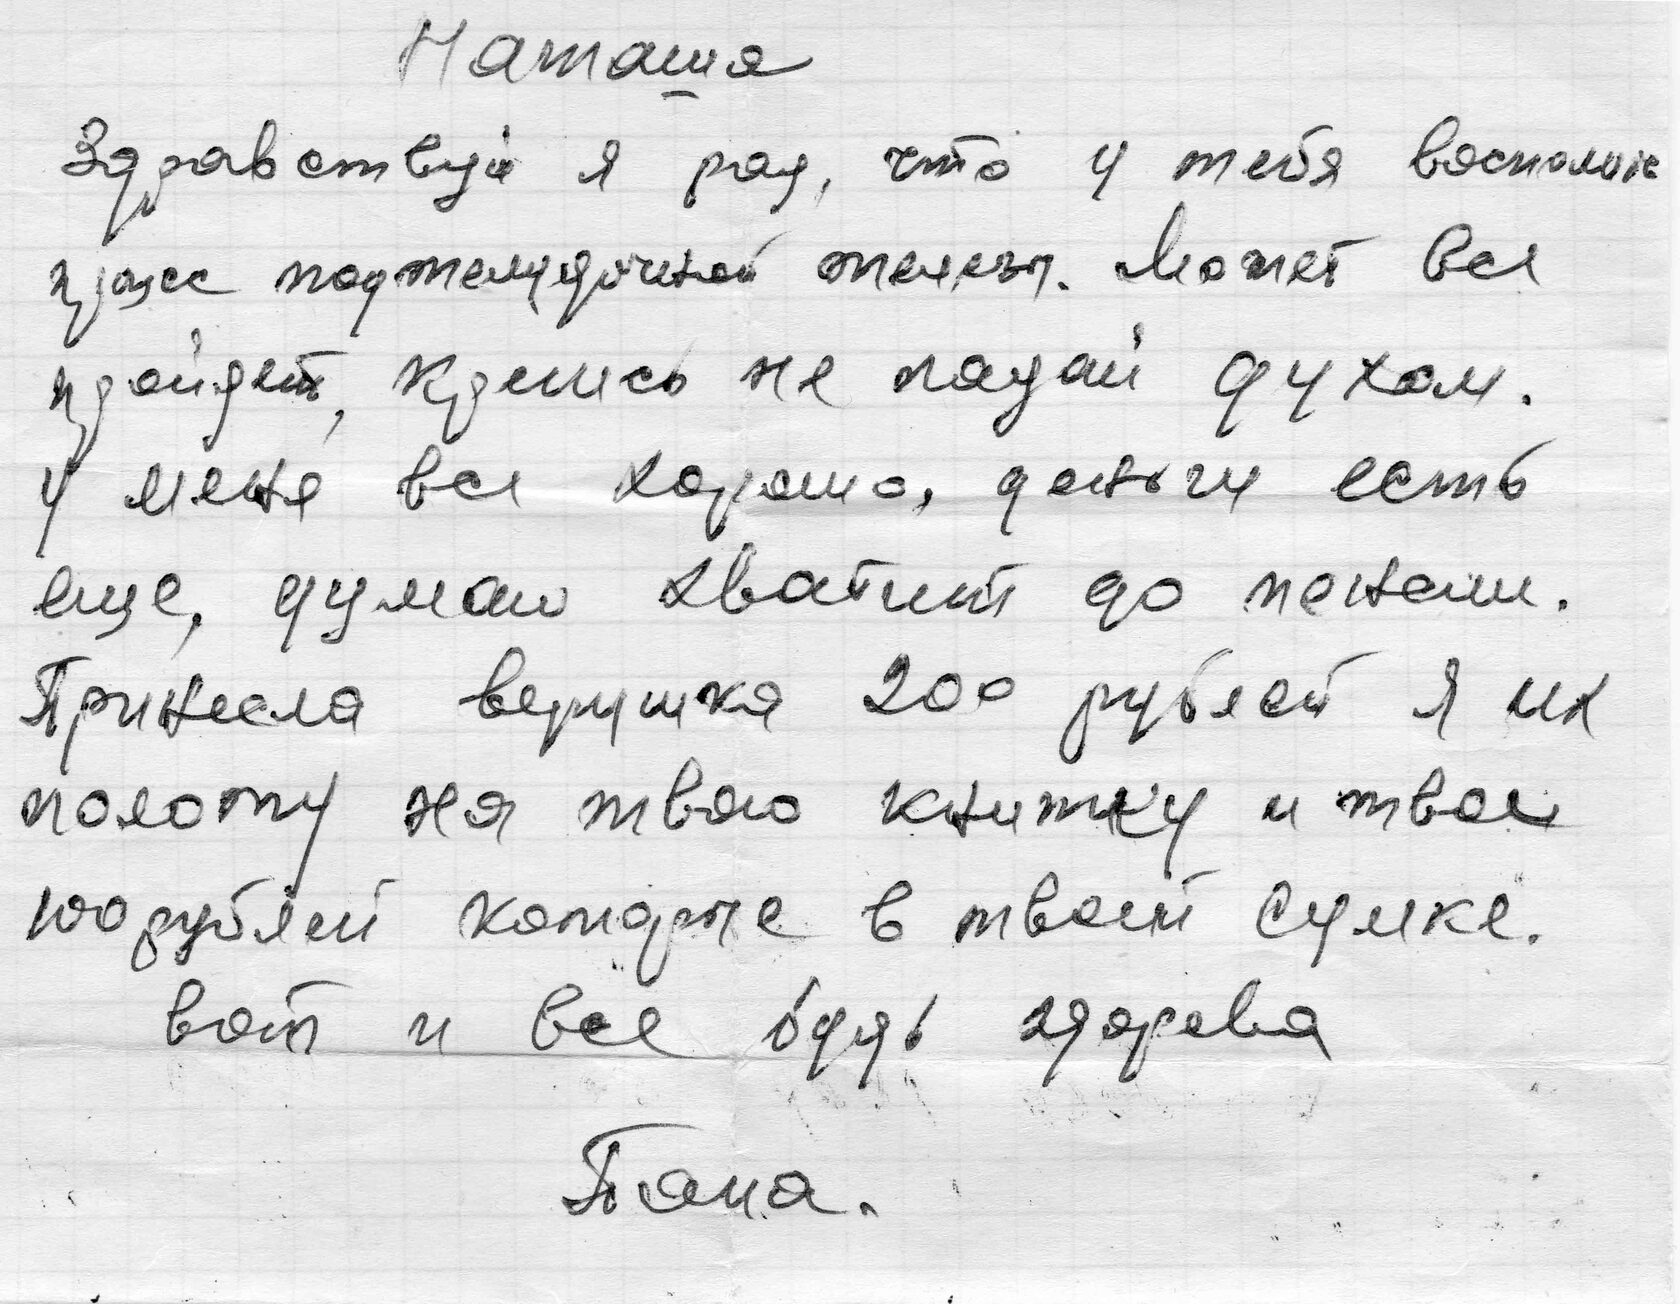 Наташа
Здравствуй я рад, что у тебя
подželудочной железы. Может все
пройдет, крепись не падай духом.
У меня все хорошо, деньги есть
еще, думаю хватит до пенсии.
Принесла Верушка 200 рублей я их
положу на твою книжку и твои
100 рублей которые в твоей сумке.
вот и все будь здорова
Папа.